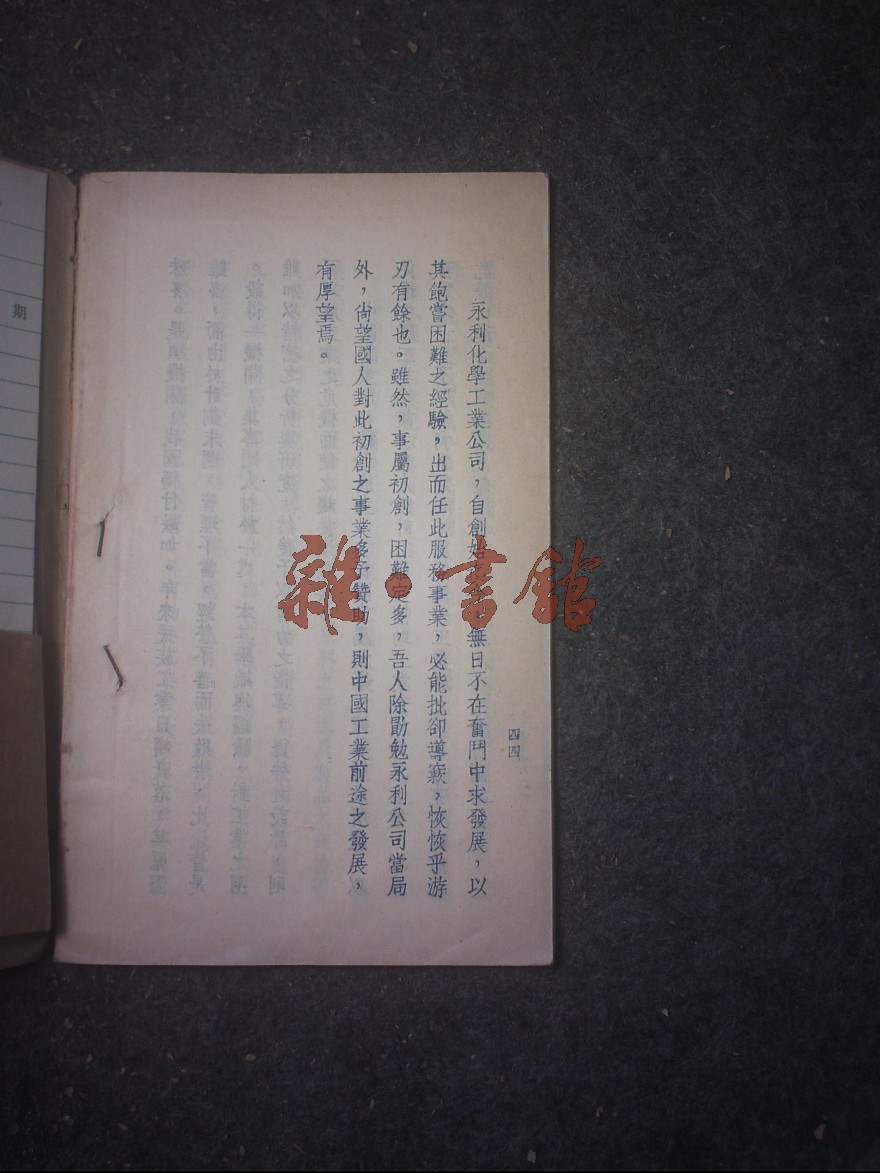 永利化學工業公司，自創始　　無日不在奮鬥中求發展，以
其飽嘗困難之經驗，出而任此服務事業，必能批卻導窾，恢恢乎游
刃有餘也。雖然，事屬初創，困難定多，吾人除勖勉永利公司當局
外，尚望國人對此初創之事業多予贊助，則中國工業前途之發展，
有厚望焉。
四四
雜·書館
期